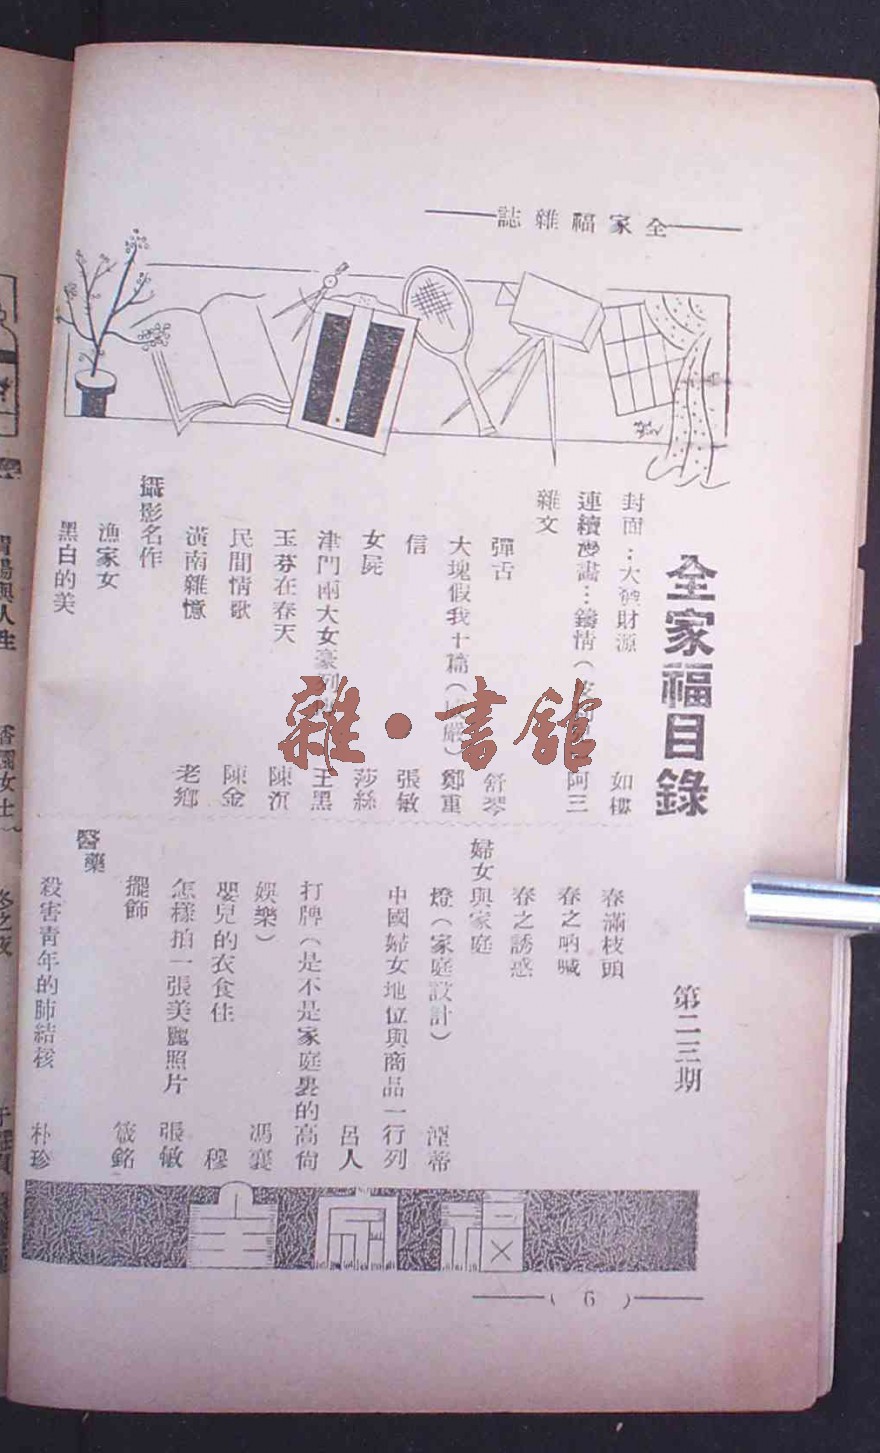 全家福雜誌
全家福目錄
第二三期
封面：大發財源 如櫻
連續漫畫：鑄情 阿三
雜文
彈舌 舒琴
大塊假我十篇 鄭重
信 張敏
女屍 莎絲
津門兩大女豪列傳 王黑
玉芬在春天 陳沉
民間情歌 陳金
潢南雜憶 老鄉
攝影名作
漁家女
黑白的美
春滿枝頭
春之吶喊
春之誘惑
婦女與家庭
燈（家庭設計） 湮蒂
中國婦女地位與商品一行列
呂人
打牌（是不是家庭裏的高尙
娛樂） 馮襄
嬰兒的衣食住 穆
怎樣拍一張美麗照片 張敏
擺飾 箴銘
醫藥
殺害靑年的肺結核 朴珍
全家福
( 6 )
雜·書館